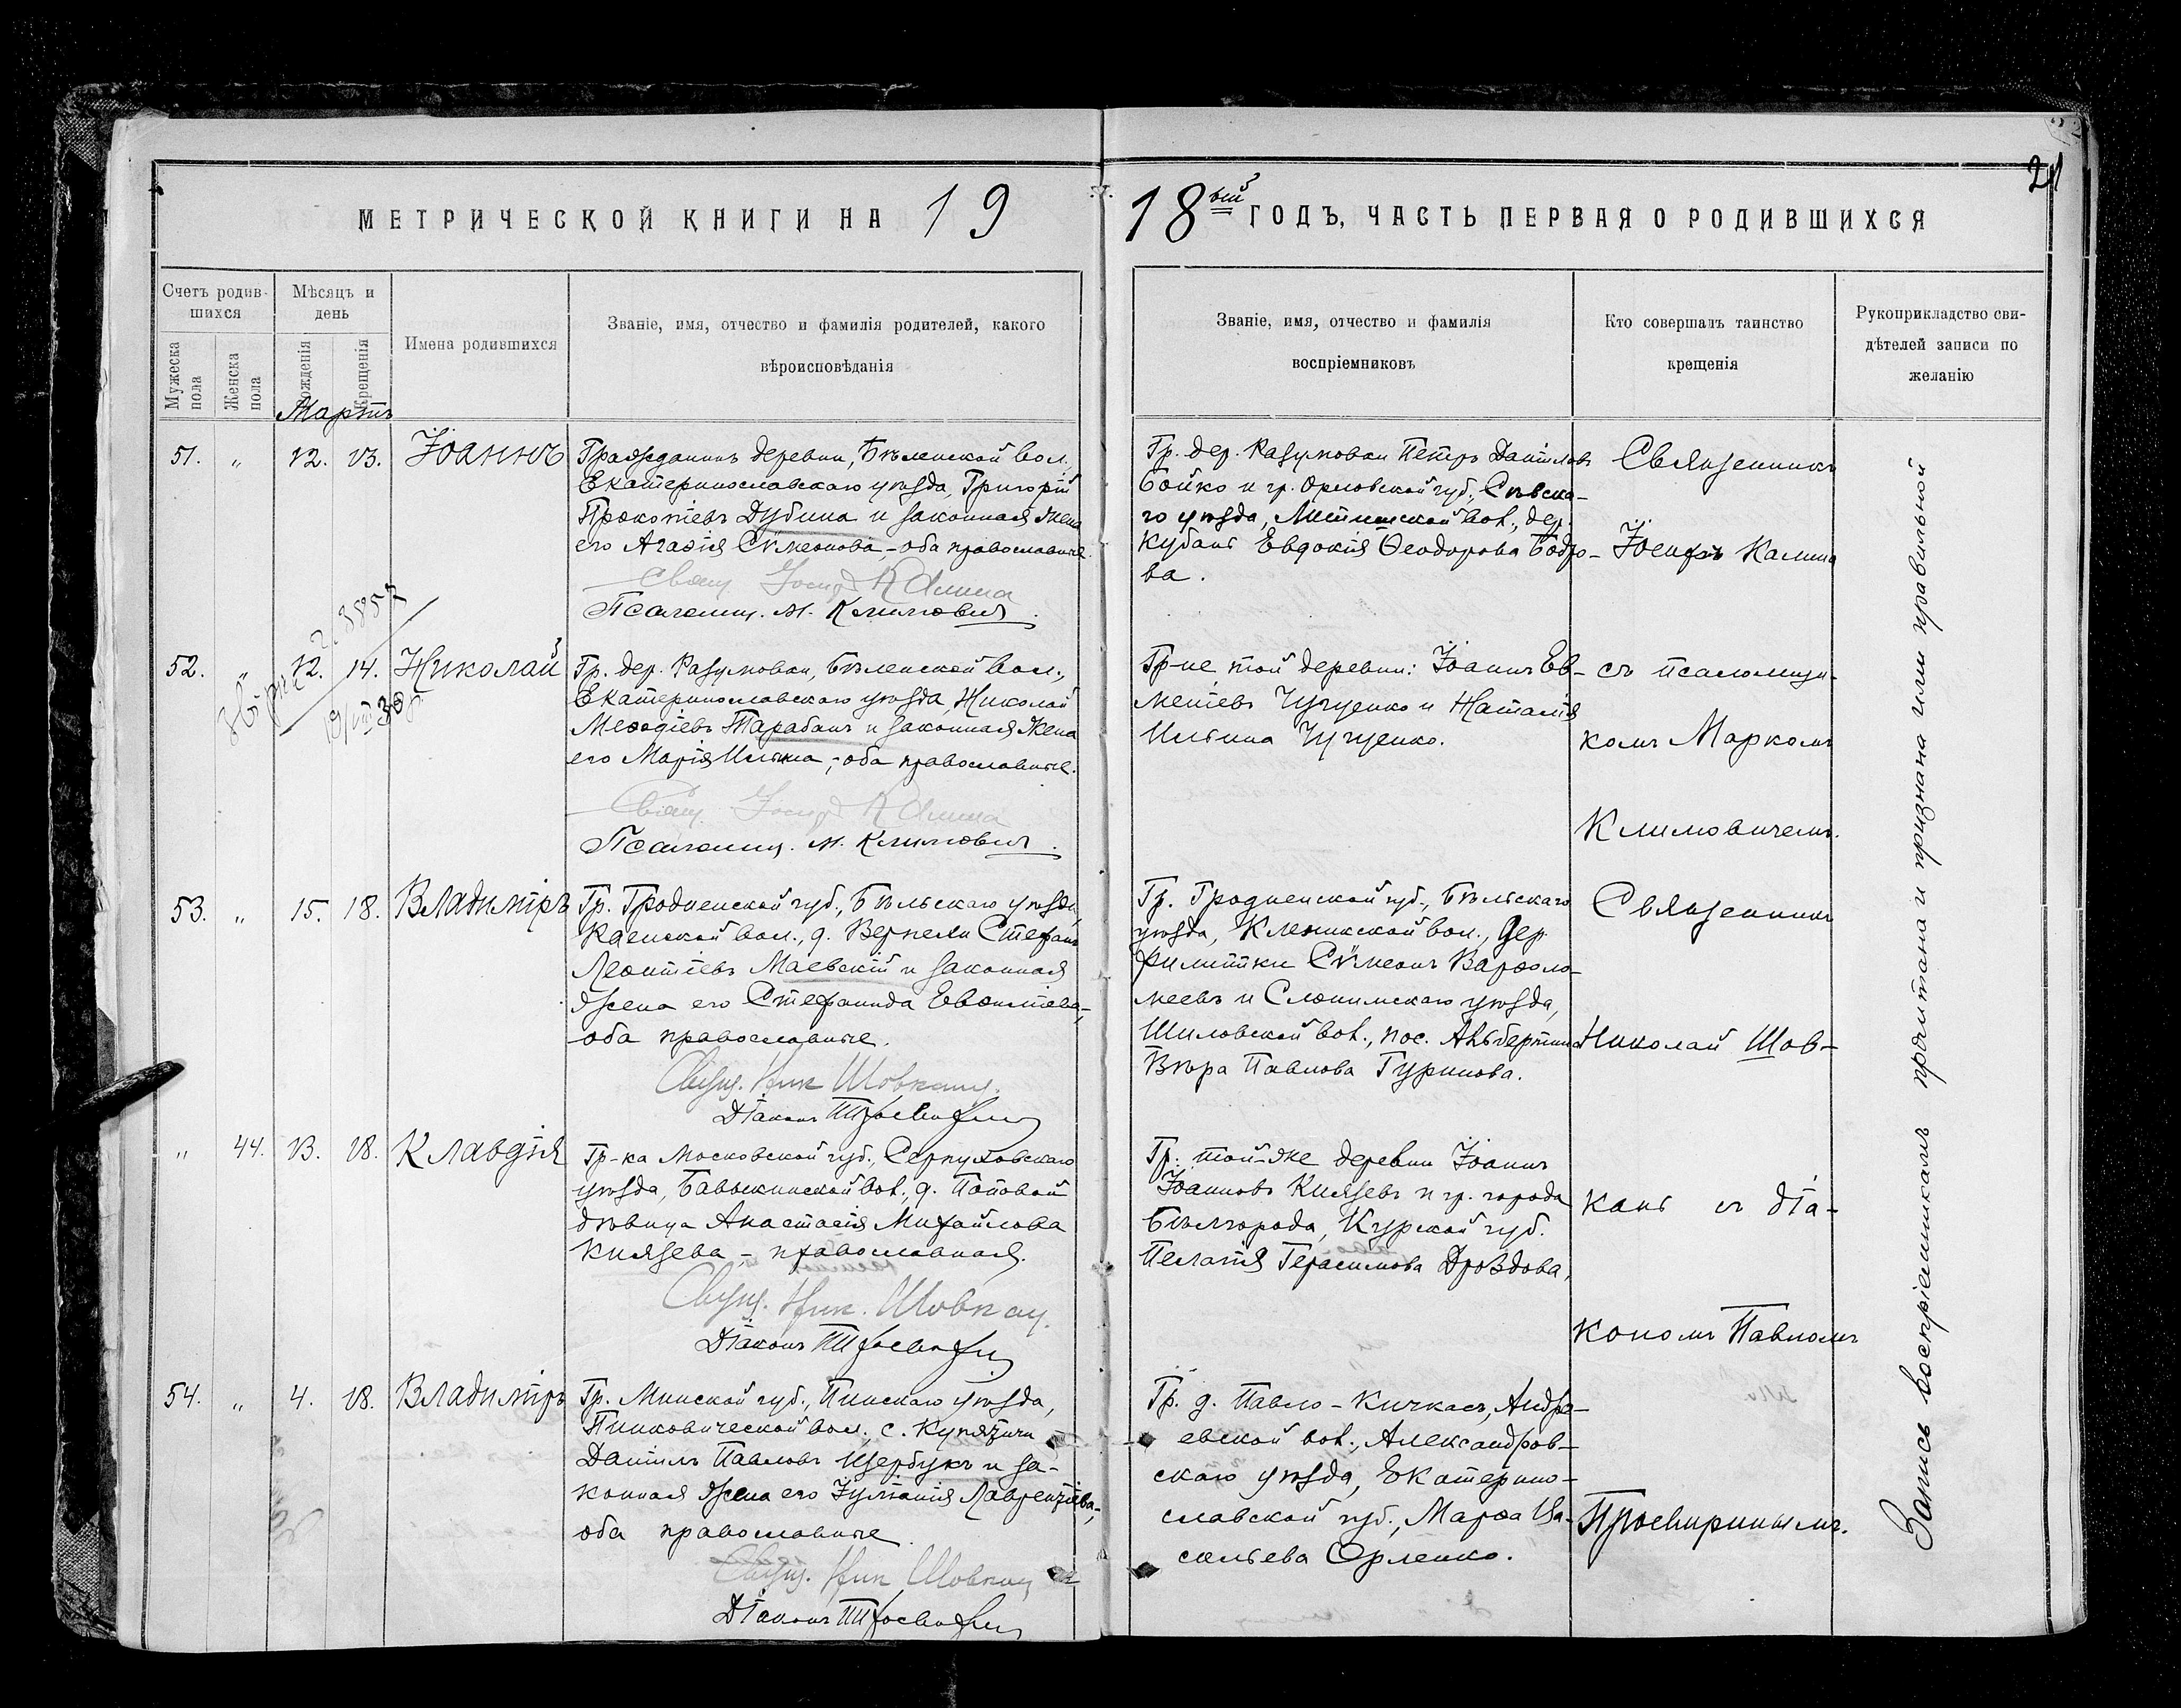 21
МЕТРИЧЕСКОЙ КНИГИ НА 19
18ый ГОДЪ, ЧАСТЬ ПЕРВАЯ О РОДИВШИХСЯ
Счетъ родив-
шихся
Мужеска пола
Женска пола
Мѣсяцъ и
день
Рожденія
Крещенія
Имена родившихся
Званіе, имя, отчество и фамилія родителей, какого
вѣроисповѣданія
Званіе, имя, отчество и фамилія
воспріемниковъ
Кто совершалъ таинство
крещенія
Рукоприкладство сви-
дѣтелей записи по
желанію
Мартъ
51. „ 12. 13. Іоаннъ
Гражданинъ деревни, Бѣленской вол.,
Екатеринославскаго уѣзда, Григорій
Прокопіевъ Дубина и законная жена
его Агаѳія Сѵмеонова, - оба православные.
Свящ Іосифъ Калина
Псаломщ. М. Климовичъ.
Гр. дер. Разумовки Петръ Даніиловъ
Бойко и гр. Орловской губ., Сѣвска-
го уѣзда, вол., дер.
Евдокія Ѳеодорова Бодро-
ва.
Священникъ
Іосифъ Калина
52. „ 12. 14. Николай
Гр. дер. Разумовки, Бѣленской вол.,
Екатеринославскаго уѣзда, Николай
Меѳодіевъ Тарабанъ и законная жена
его Марія Ильина, - оба православные.
Свящ. Іосифъ Калина
Псаломщ. М. Климовичъ.
Гр-не той деревни: Іоаннъ Ев-
меніевъ и Наталія
Ильина
съ псаломщи-
комъ Маркомъ
Климовичемъ.
53. „ 15. 18. Владиміръ
Гр. Гродненской губ., Бѣльскаго уѣзда,
вол., д. Стефанъ
Леонтіевъ Маевскій и законная
жена его Стефанида
оба православные.
Свящ. Ник Шовкопл.
Діаконъ П Просвиринъ
Гр. Гродненской губ., Бѣльскаго
уѣзда, Кленикской вол., дер.
Филипки Сѵмеонъ Варѳоло-
меевъ и Слонимскаго уѣзда,
Шиловской вол., пос. Альбертинъ
Вѣра Павлова Гуринова.
Священникъ
Николай Шов-
„ 44. 13. 18. Клавдія
Гр-ка Московской губ., Серпуховскаго
уѣзда, Бавыкинской вол., д. Поповой
дѣвица Анастасія Михайлова
Князева, - православная.
Свящ. Ник. Шовкоп.
Діаконъ П Просвиринъ
Гр. той-же деревни Іоаннъ
Іоанновъ Князевъ и гр. города
Бѣлгорода, Курской губ.
Пелагія Герасимова Дроздова.
съ діа-
кономъ Павломъ
54. „ 4. 18. Владиміръ
Гр. Минской губ., Пинскаго уѣзда,
Пинковической вол., с. Купятичи
Даніилъ Павловъ Щербукъ и за-
конная жена его Іуліанія Лаврентіева, -
оба православные.
Свящ. Ник Шовкоп
Діаконъ П Просвиринъ
Гр. д. Павло-Кичкасъ, Андре-
евской вол., Александров-
скаго уѣзда, Екатерино-
славской губ., Марѳа Ва-
сильева Орленко.
Просвиринымъ.
Запись воспріемникамъ прочитана и признана ими правильной